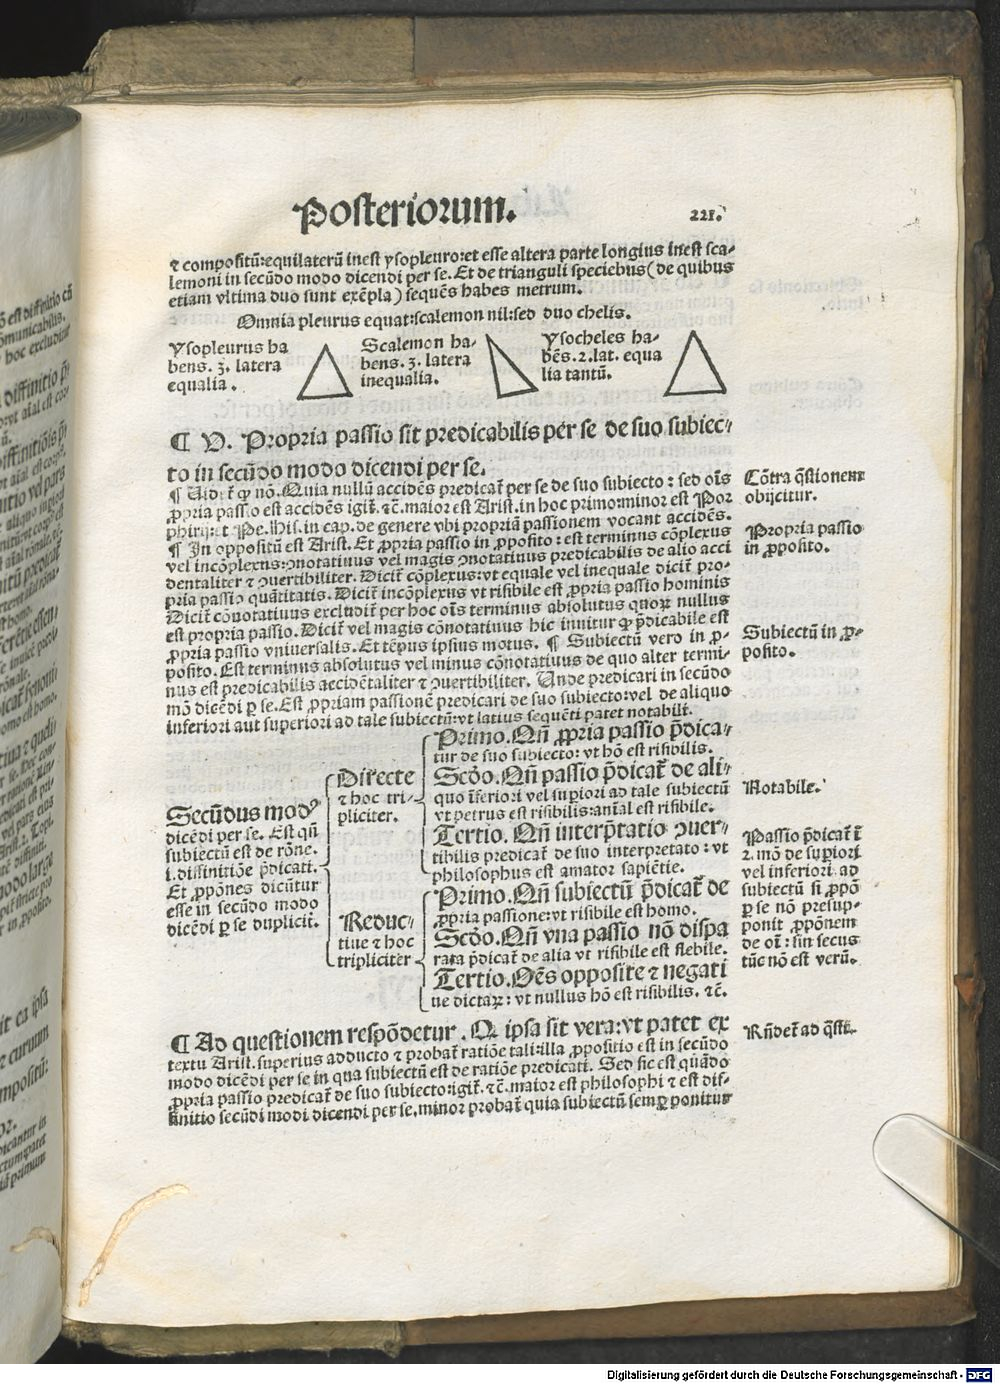 Posteriorum.
221.
⁊ compositũ:equilaterũ inest ysopleuro:et esse altera parte longius inest sca-
lemoni in secũdo modo dicendi per se. Et de trianguli speciebus (de quibus
etiam vltima duo sunt exẽpla) sequẽs habes metrum.
Omnia pleurus equat:scalemon nil:sed duo chelis.
Ysopleurus ha
bens. 3. latera
equalia.
Scalemon ha-
bens. 3. latera
inequalia.
Ysocheles ha-
bẽs. 2. lat. equa
lia tantũ.
¶ V. Propria passio sit predicabilis per se de suo subiec-
to in secũdo modo dicendi per se.
¶ Uidet̃ ꝙ nõ. Quia nullũ accidẽs predicat̃ per se de suo subiecto: sed oĩs
ꝓpria passio est accidẽs igit̃. ⁊c̃. maior est Arist. in hoc primo:minor est Por
phirij: et Pe. His. in cap. de genere vbi propriã passionem vocant accidẽs.
¶ In oppositũ est Arist. Et ꝓpria passio in ꝓposito: est terminus cõplexus
vel incõplexus:ɔnotatiuus vel magis ɔnotatiuus predicabilis de alio acci
dentaliter ⁊ ɔuertibiliter. Dicit̃ cõplexus:vt equale vel inequale dicit̃ pro-
pria passio quãtitatis. Dicit̃ incõplexus vt risibile est ꝓpria passio hominis
Dicit̃ cõnotatiuus excludit̃ per hoc oĩs terminus absolutus quoꝝ nullus
est propria passio. Dicit̃ vel magis cõnotatiuus hic innitur ꝙ p̃dicabile est
ꝓpria passio vniuersalis. Et tẽpus ipsius motus. ¶ Subiectũ vero in ꝓ-
posito. Est terminus absolutus vel minus cõnotatiuus de quo alter termi-
nus est predicabilis accidẽtaliter ⁊ ɔuertibiliter. Unde predicari in secũdo
mõ dicẽdi ꝑ se. Est ꝓpriam passionẽ predicari de suo subiecto:vel de aliquo
inferiori aut superiori ad tale subiectũ:vt latius sequẽti patet notabili.
Cõtra q̃stionem
obijcitur.
Propria passio
in ꝓposito.
Subiectũ in ꝓ-
posito.
Secũdus modꝰ
dicẽdi per se. Est qñ
subiectũ est de rõne.
i. diffinitiõe p̃dicati.
Et ꝓpõnes dicũtur
esse in secũdo modo
dicẽdi ꝑ se duplicit̃.
Directe
⁊ hoc tri-
pliciter.
Primo. Qñ ꝓpria passio p̃dica-
tur de suo subiecto: vt hõ est risibilis.
Scðo. Qñ passio p̃dicat̃ de ali-
quo ĩferiori vel supiori ad tale subiectũ
vt petrus est risibilis:anĩal est risibile.
Tertio. Qñ interp̃tatio ɔuer-
tibilis predicat̃ de suo interpretato: vt
philosophus est amator sapiẽtie.
Reduc-
tiue ⁊ hoc
tripliciter
Primo. Qñ subiectũ p̃dicat̃ de
ꝓpria passione:vt risibile est homo.
Scðo. Qñ vna passio nõ dispa
rata p̃dicat̃ de alia vt risibile est flebile.
Tertio. Oẽs opposite ⁊ negati
ue dictaꝝ: vt nullus hõ est risibilis. ⁊c̃.
Notabile.
Passio p̃dicat̃ ĩ
2. mõ de supiori
vel inferiori ad
subiectũ si ꝓpõ
ꝑ se nõ presup-
ponit ꝓpõnem
de oĩ: sin secus
tũc nõ est verũ.
¶ Ad questionem respõdetur. Q ipsa sit vera:vt patet ex
textu Arist. superius adducto ⁊ probat̃ ratiõe tali:illa ꝓpositio est in secũdo
modo dicẽdi per se in qua subiectũ est de ratiõe predicati. Sed sic est quãdo
ꝓpria passio predicat̃ de suo subiecto:igit̃. ⁊c̃. maior est philosophi ⁊ est dif-
finitio secũdi modi dicendi per se, minor probat̃ quia subiectũ semꝑ ponitur
Rñdet̃ ad q̃stĩ.
Digitalisierung gefördert durch die Deutsche Forschungsgemeinschaft - DFG